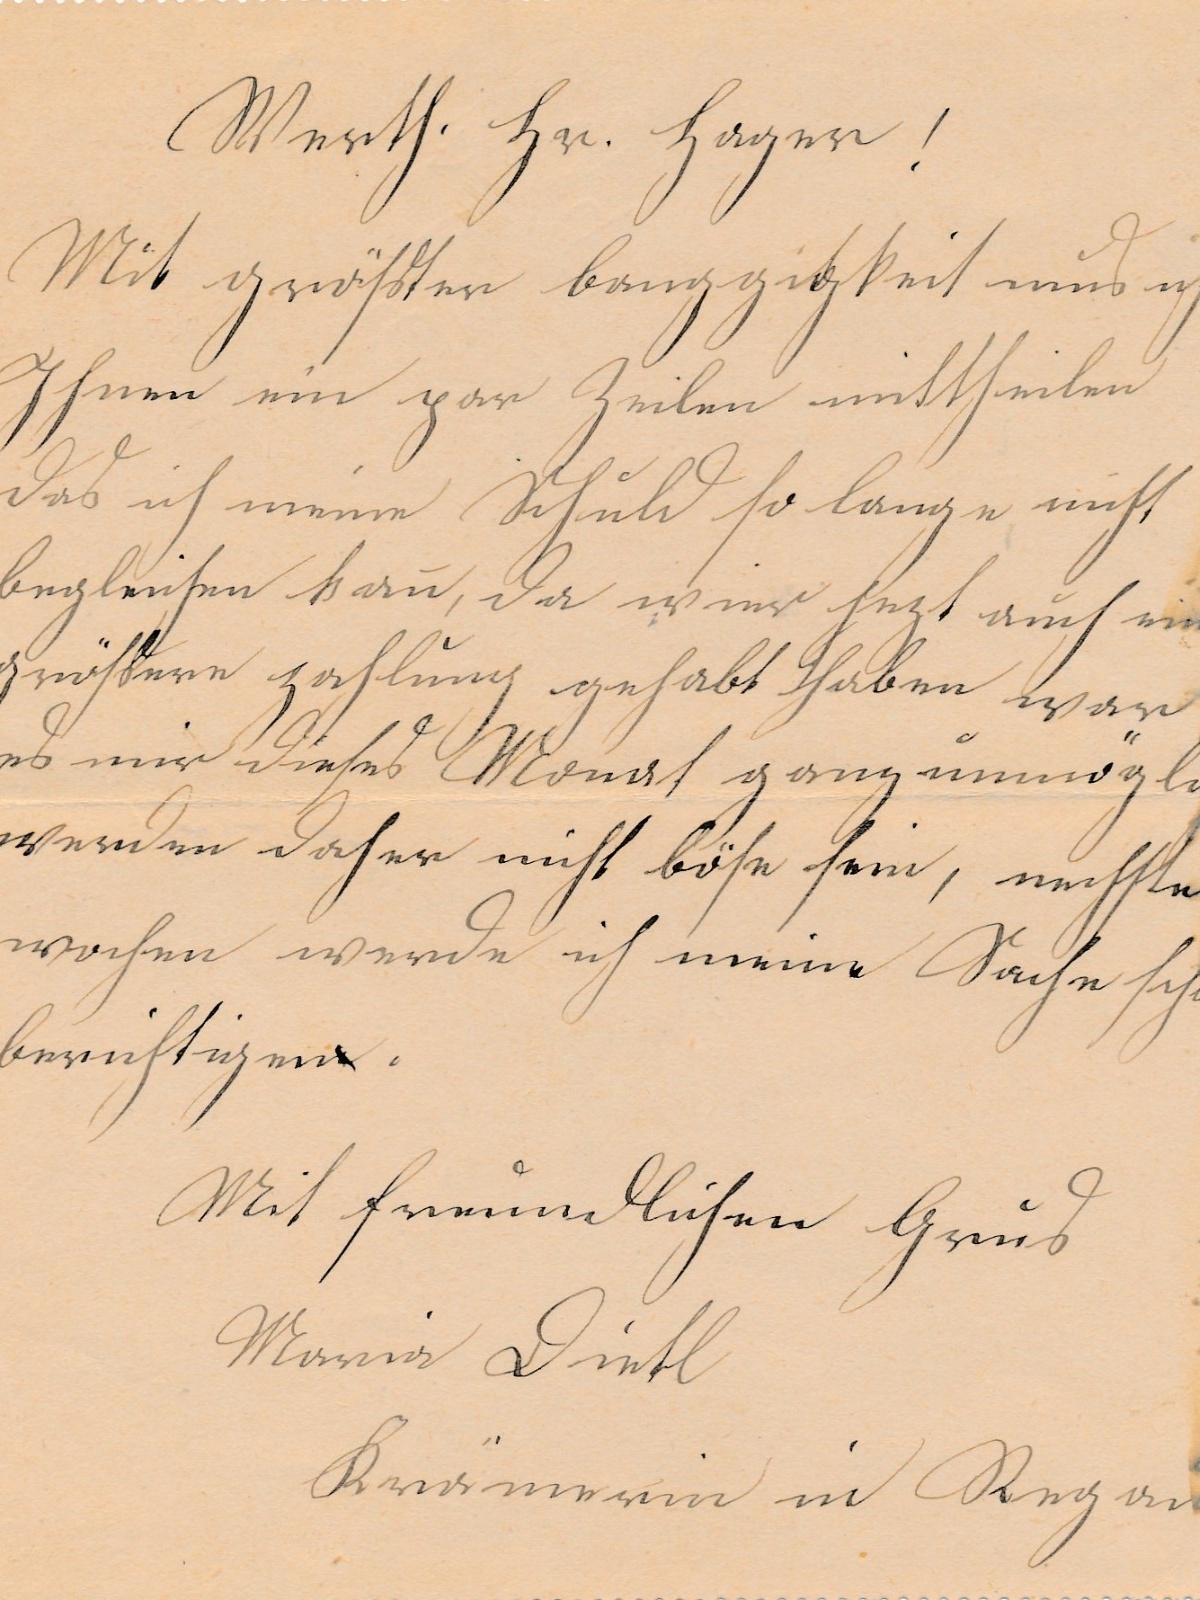 Werth. Hr. Hager!
Mit größter banggigkeit mus ich
Ihnen ein par Zeilen mittheilen
das ich meine Schuld so lange nicht
begleichen kan̄, da wier jezt auch ein
größere zahlung gehabt haben war
es mir dieses Monat ganz unmögli
werden daher nicht böse sein, nechste
wochen werde ich meine Sache scho
berichtigen.
Mit freundlichen Grus
Maria Dietl
Krämerin in Regan